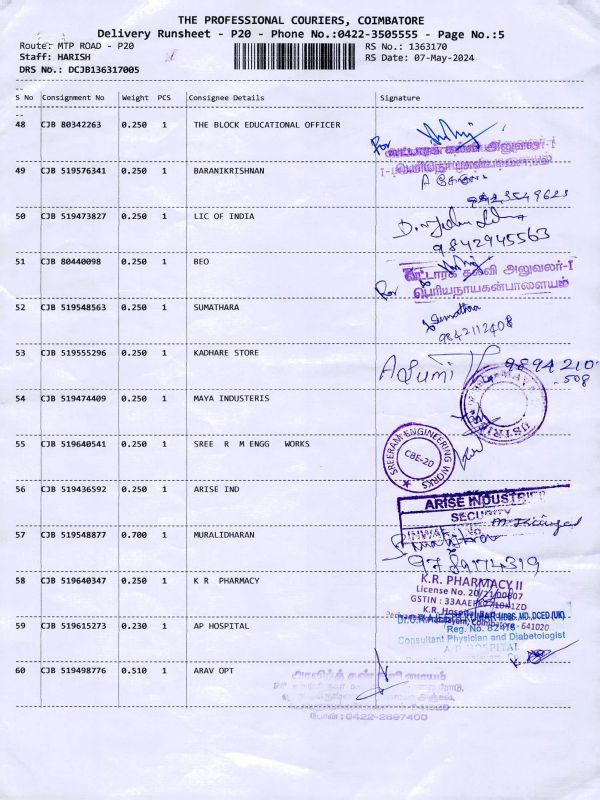 THE PROFESSIONAL COURIERS, COIMBATORE
Delivery Runsheet - P20 - Phone No.:0422-3505555 - Page No.:5
Route: MTP ROAD - P20
RS No.: 1363170
Staff: HARISH
RS Date: 07-May-2024
DRS No.: DCJB136317005
S No Consignment No Weight PCS Consignee Details Signature
48 CJB 80342263 0.250 1 THE BLOCK EDUCATIONAL OFFICER
For
வட்டாரக் கல்வி அனுவலர்-I
49 CJB 519576341 0.250 1 BARANIKRISHNAN
50 CJB 519473827 0.250 1 LIC OF INDIA
9842945563
51 CJB 80440098 0.250 1 BEO
வட்டாரக் கல்வி அனுவலர்-I
For
பெரியநாயகன்பாளையம்
52 CJB 519548563 0.250 1 SUMATHARA
Sumathara
9842112408
53 CJB 519555296 0.250 1 KADHARE STORE
9894210
-508
54 CJB 519474409 0.250 1 MAYA INDUSTERIS
55 CJB 519640541 0.250 1 SREE R M ENGG WORKS
SREERAM ENGINEERING WORKS
CBE-20
56 CJB 519436592 0.250 1 ARISE IND
ARISE INDUSTRIES
SECURITY
57 CJB 519548877 0.700 1 MURALIDHARAN
58 CJB 519640347 0.250 1 K R PHARMACY
K.R. PHARMACY II
License No. 20/21/00807
K.R. Hospital
59 CJB 519615273 0.230 1 AP HOSPITAL
MBBS, MD, DCED (UK)
Reg. No. 82416
- 641020
Consultant Physician and Diabetologist
A.P. HOSPITAL
60 CJB 519498776 0.510 1 ARAV OPT
போன்:0422-2697400